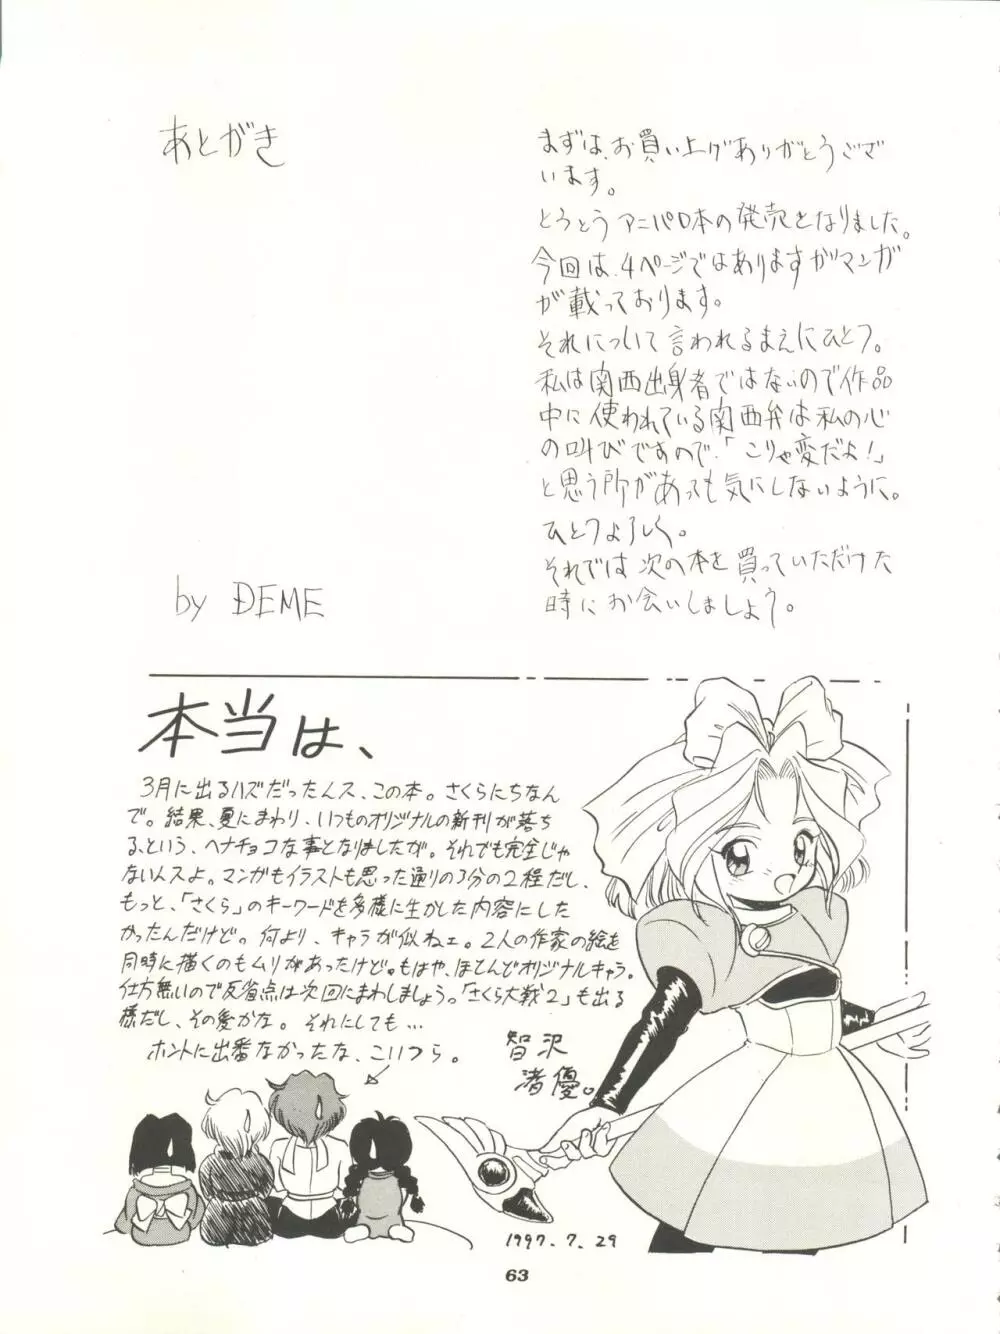 あとがき
まずは、お買い上げありがとうござ
います。
とうとうアニパロ本の発売となりました。
今回は、4ページではありますがマンガ
が載っております。
それについて言われるまえにひとつ。
私は関西出身者ではないので作品
中に使われている関西弁は私の心
の叫びですので、「こりゃ変だよ!」
と思う所があっても気にしないように。
ひとつよろしく。
それでは次の本を買っていただけた
時にお会いしましょう。
by DEME
本当は、
3月に出るハズだったんス、この本。さくらにちなん
で。結果、夏にまわり、いつものオリジナルの新刊が落ち
る、という、ヘナチョコな事となりましたが。それでも完全じゃ
ないんスよ。マンガもイラストも思った通りの3分の2程だし、
もっと、「さくら」のキーワードを多様に生かした内容にした
かったんだけど。何より、キャラが似ねェ。2人の作家の絵を
同時に描くのもムリがあったけど。もはや、ほとんどオリジナルキャラ。
仕方無いので反省点は次回にまわしましょうっ。「さくら大戦2」も出る
様だし、その後かな。それにしても…
ホントに出番なかったな、こいつら。
智沢
渚優。
1997.7.29
63